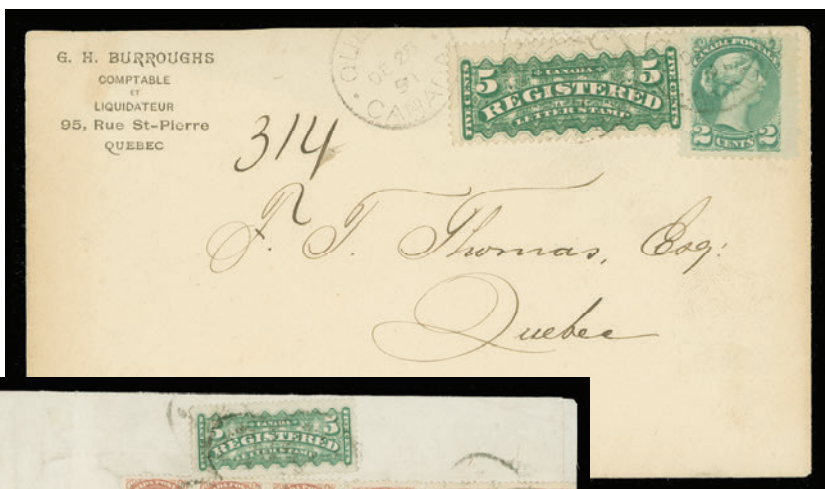 G. H. BURROUGHS
COMPTABLE
ET
LIQUIDATEUR
95, Rue St-Pierre
QUEBEC
QUE
DE 28
91
CANADA
FIVE CENTS
5
CANADA
5
REGISTERED
LETTER STAMP
FIVE CENTS
CANADA POSTAGE
2 CENTS 2
314
R
T. Thomas, Esq:
Quebec
5
CANADA
5
REGISTERED
LETTER STAMP